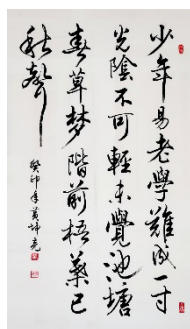 少年易老學難成一寸
光陰不可輕未覺池塘
春草夢階前梧葉已
秋聲
癸卯年黃坤堯